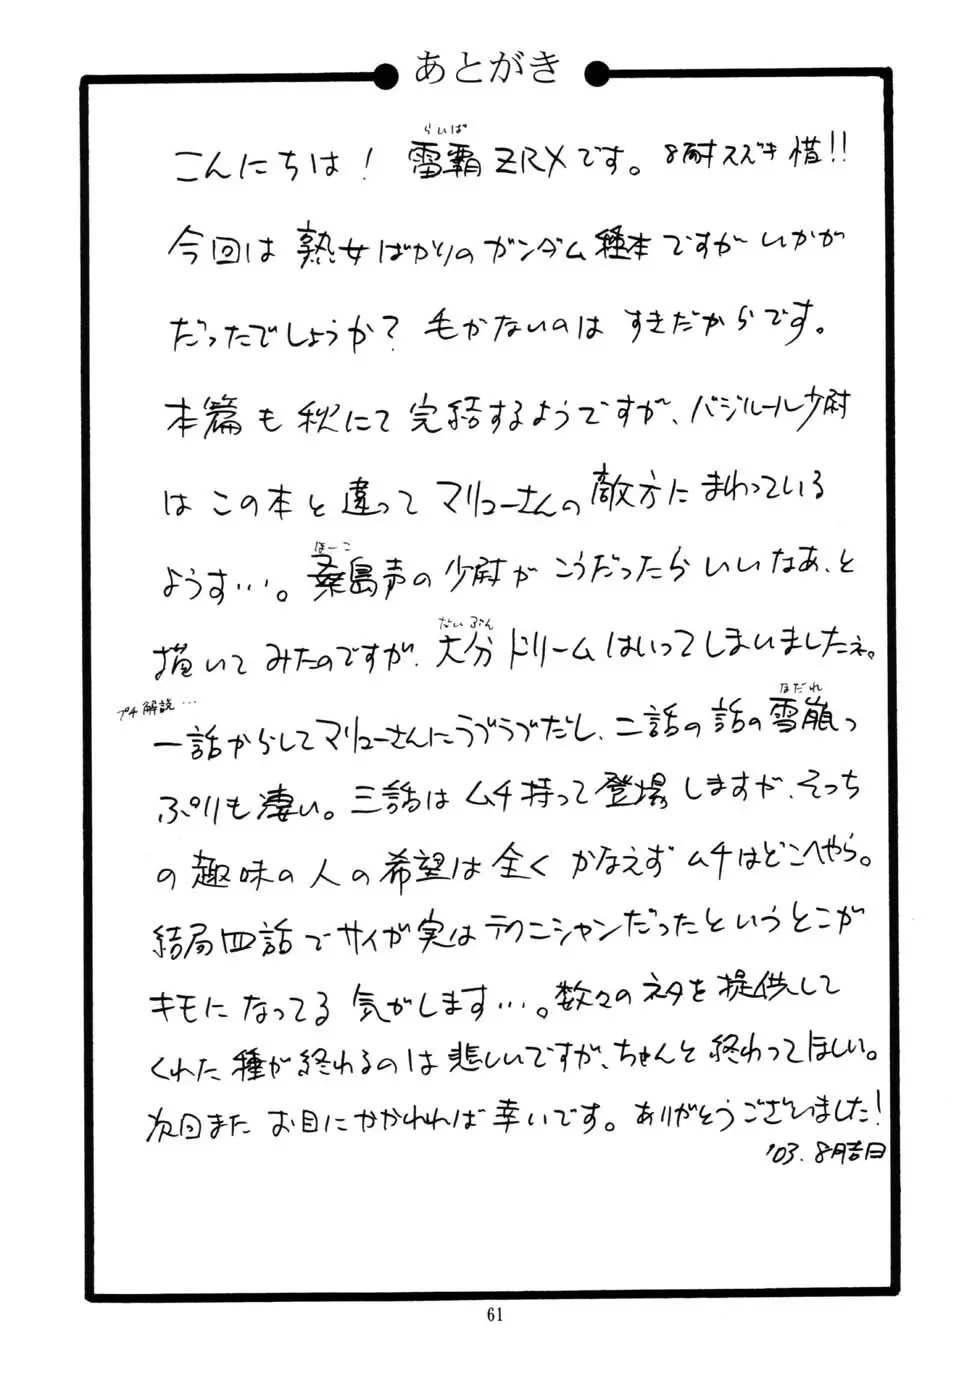 あとがき
らいぱ
こんにちは！ 雷覇ZRXです。 8耐スズキ惜!!
今回は熟女ばかりのガンダム種本ですがいかが
だったでしょうか？ 毛がないのはすきだからです。
本篇も秋にて完結するようですが、バジルール少尉
はこの本と違ってマリューさんの敵方にまわっている
ほーこ
ようす…。桑島声の少尉がこうだったらいいなあ、と
だいぶん
描いてみたのですが、大分ドリームはいってしまいましたネ。
プチ解説…
なだれ
一話からしてマリューさんにラブラブだし、二話の話の雪崩っ
ぷりも凄い。三話はムチ持って登場しますが、そっち
の趣味の人の希望は全くかなえずムチはどこへやら。
結局四話でサイが実はテクニシャンだったというとこが
キモになってる気がします…。数々のネタを提供して
くれた種が終わるのは悲しいですが、ちゃんと終わってほしい。
次回またお目にかかれれば幸いです。ありがとうございました！
'03.8月吉日
61